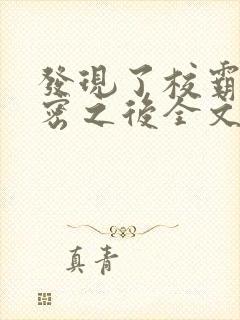 發現了校霸
密之後全文
真青